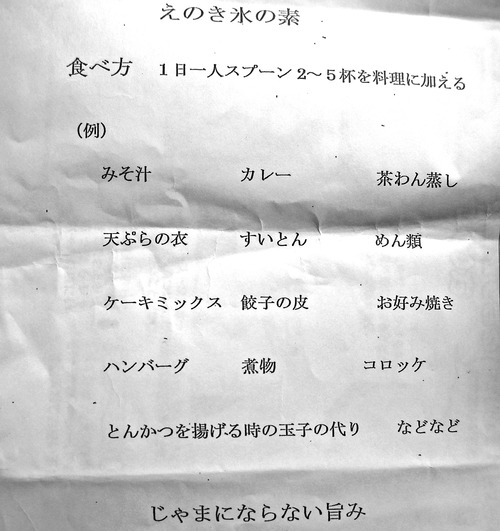 えのき氷の素
食べ方　１日一人スプーン２～５杯を料理に加える
（例）
みそ汁　カレー　茶わん蒸し
天ぷらの衣　すいとん　めん類
ケーキミックス　餃子の皮　お好み焼き
ハンバーグ　煮物　コロッケ
とんかつを揚げる時の玉子の代り　などなど
じゃまにならない旨み